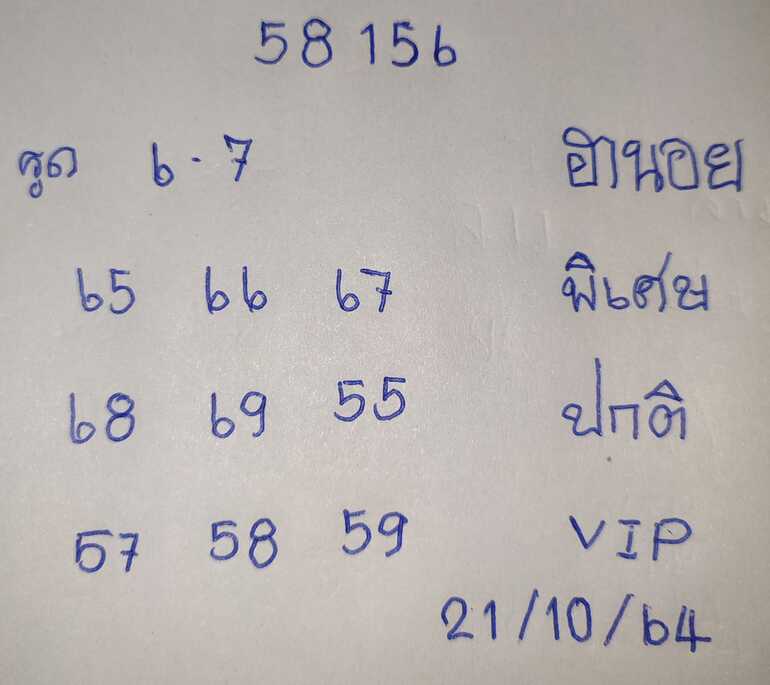 58156
รูด 6-7 ฮานอย
65 66 67 พิเศษ
68 69 55 ปกติ
57 58 59 VIP
21/10/64